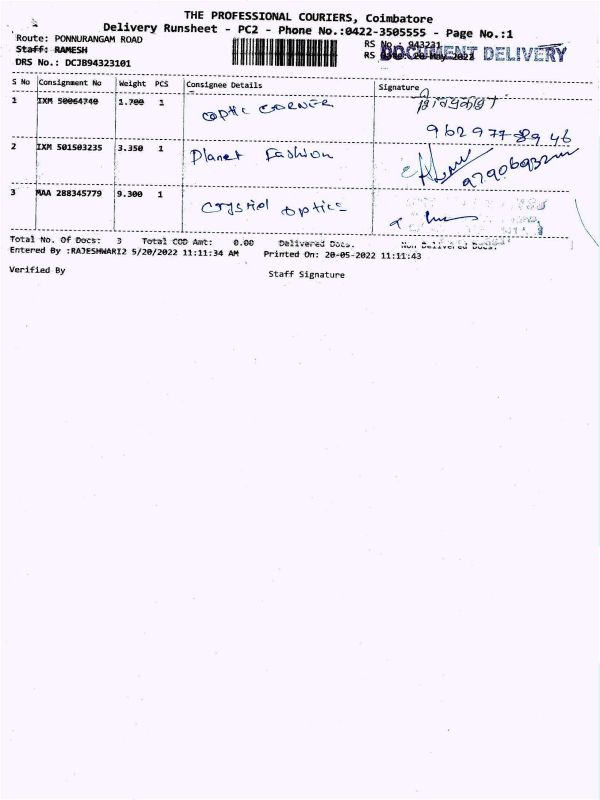 THE PROFESSIONAL COURIERS, Coimbatore
Delivery Runsheet - PC2 - Phone No.:0422-3505555 - Page No.:1
Route: PONNURANGAM ROAD
RS No.: 943231
Staff: RAMESH
RS Date: 20-May-2022
DOCUMENT DELIVERY
DRS No.: DCJB94323101
S No Consignment No Weight PCS Consignee Details Signature
1 IXM 50064740 1.700 1 optic CORNER
962977 8946
2 IXM 501503235 3.350 1 Planet Fashion
3 MAA 288345779 9.300 1 Crystal optics
Total No. Of Docs: 3 Total COD Amt: 0.00 Delivered Docs. Non Delivered Docs.
Entered By :RAJESHWARI2 5/20/2022 11:11:34 AM Printed On: 20-05-2022 11:11:43
Verified By Staff Signature